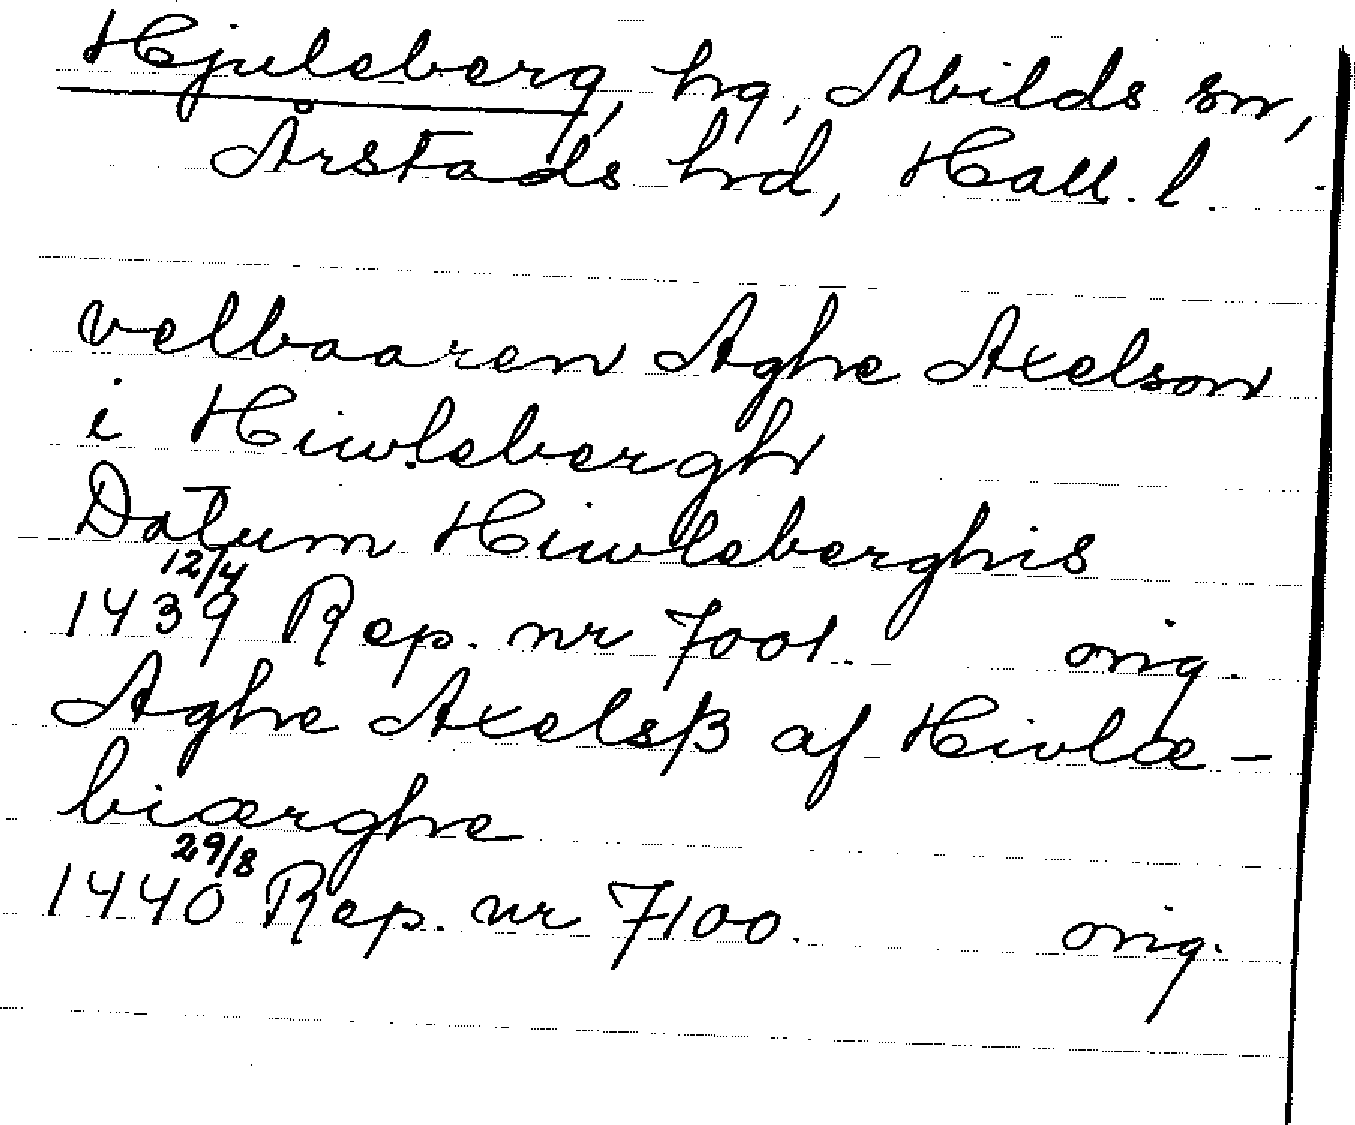 Hjuleberg, hg, Abilds sn,
Årstads hd, Hall. l.
velbaaren Aghe Axelson
i Hiwlebergh
Datum Hiwleberghis
12/4
1439 Rep. nr 7001. orig.
Aghe Axelsβ af Hivlæ-
biærghe
29/8
1440 Rep. nr 7100. orig.